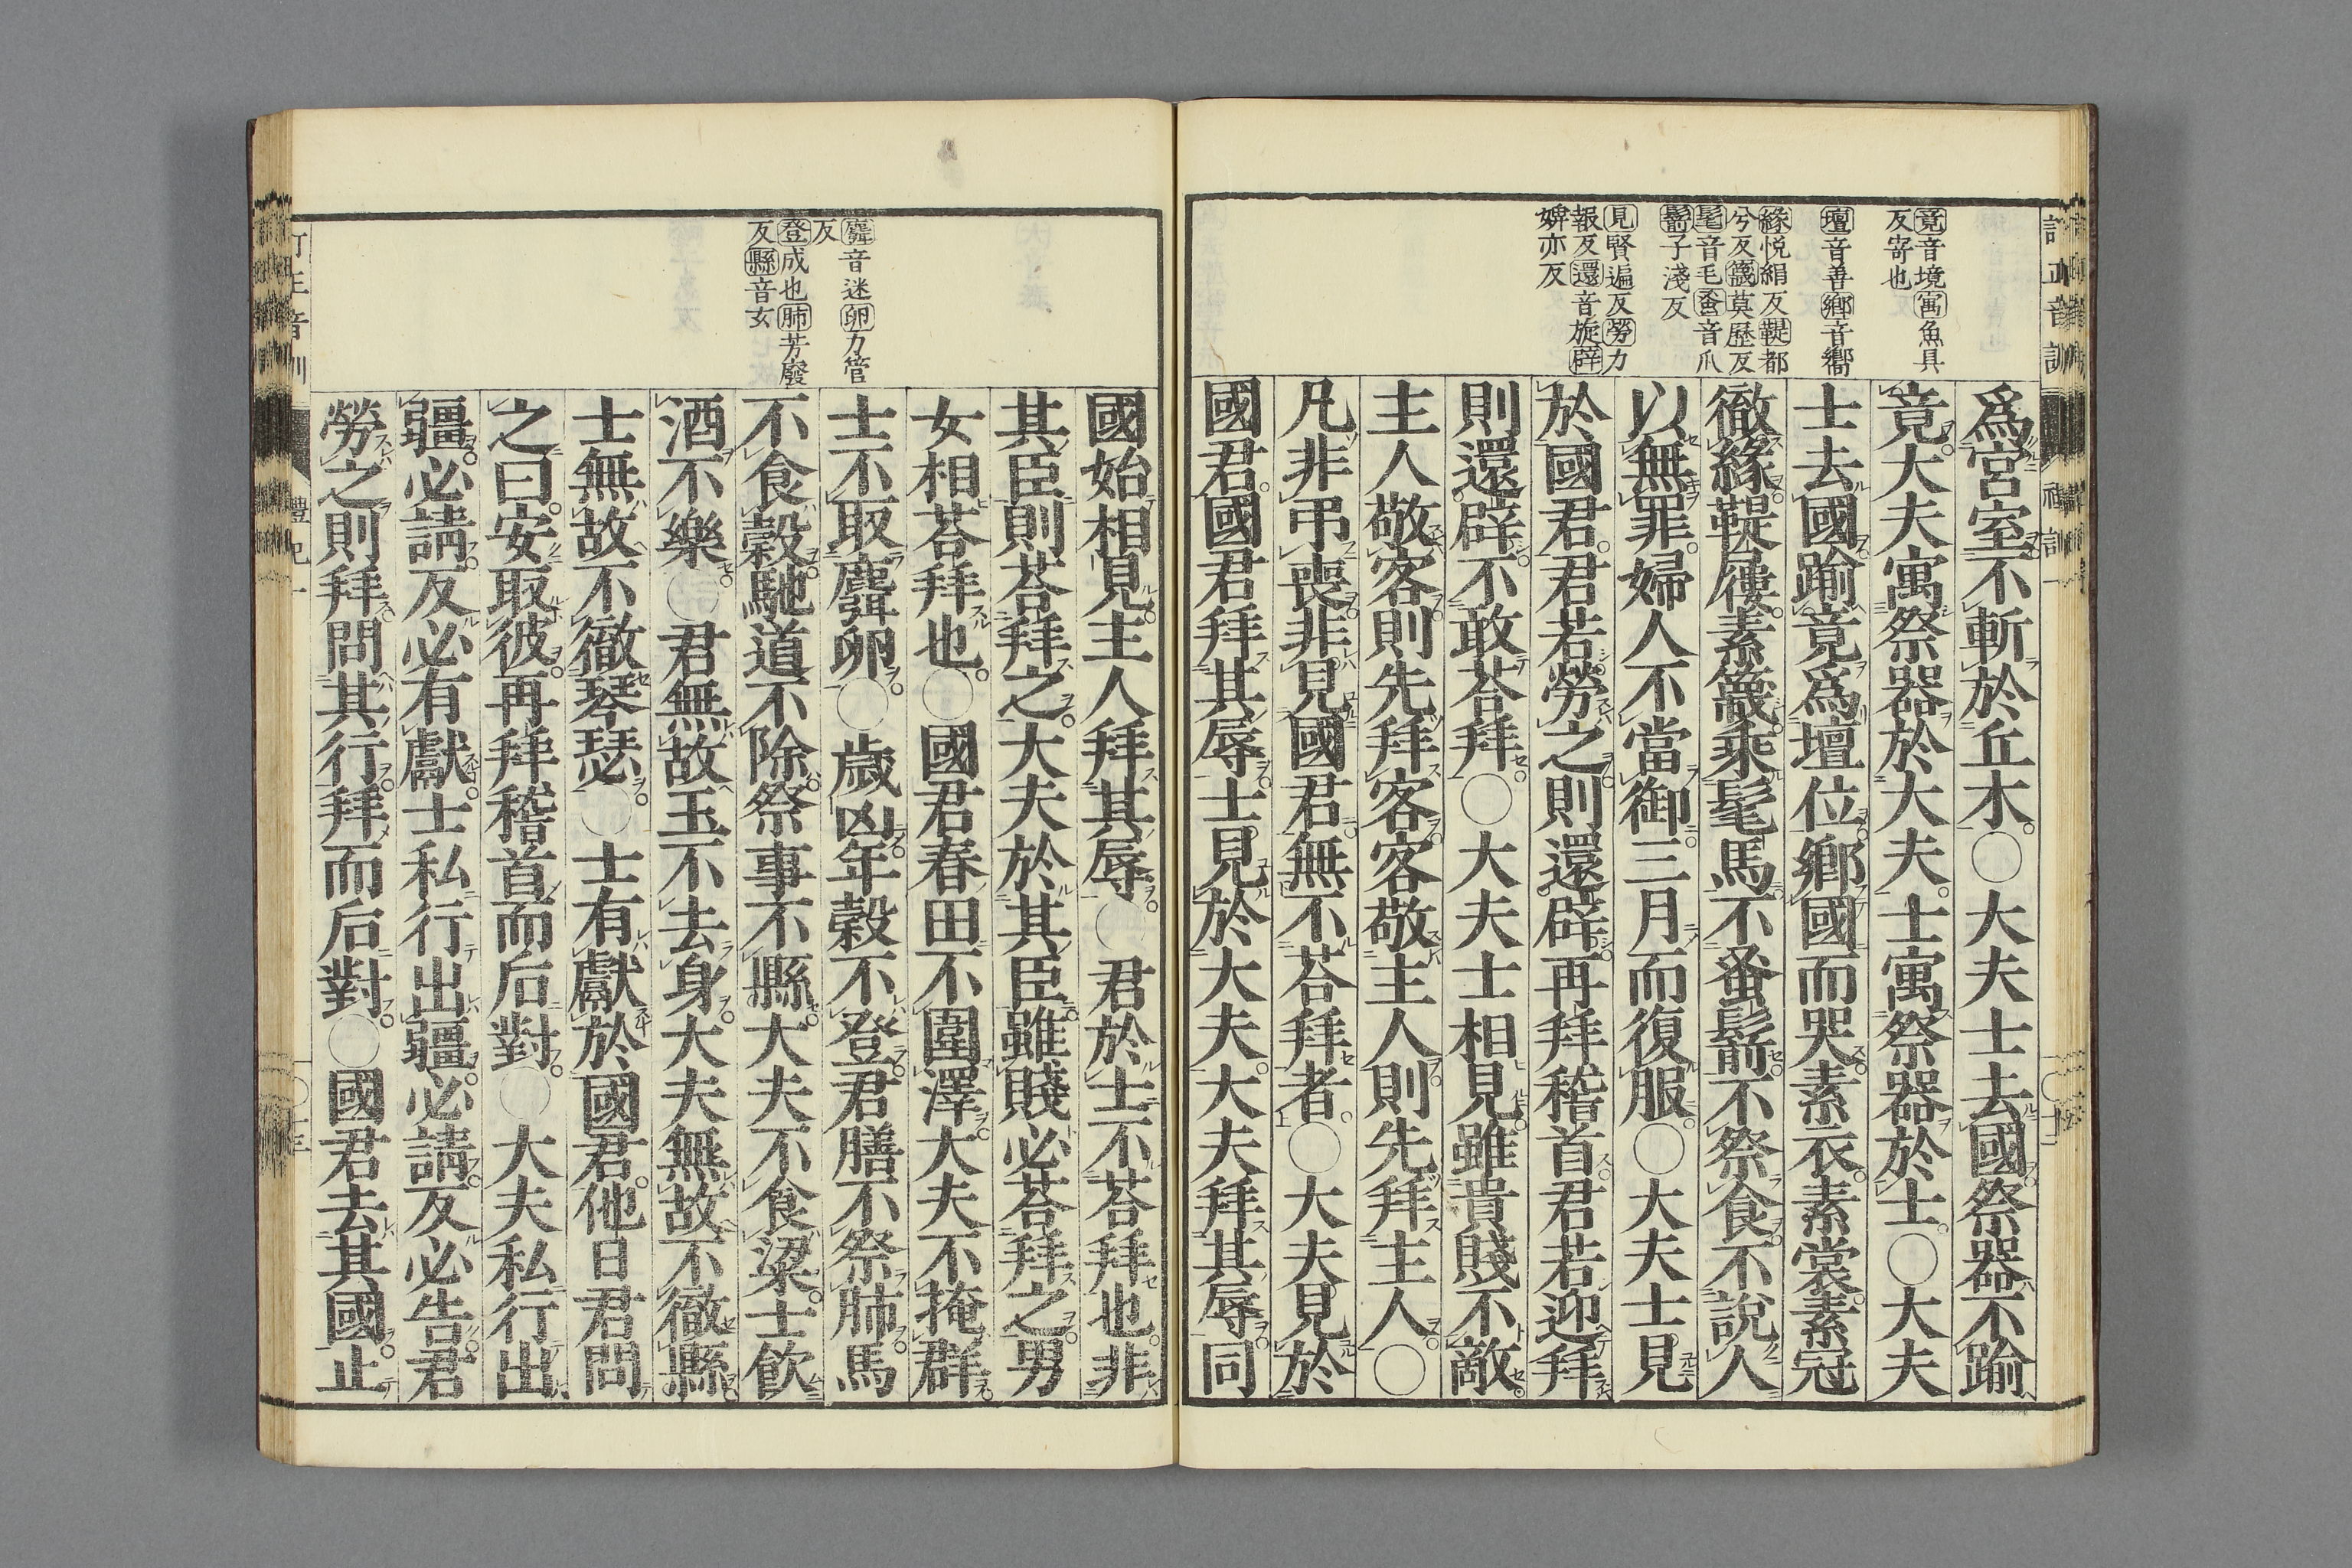 竟音境寓魚具
反寄也
壇音善鄕音嚮
緣悦絹反鞮都
兮反簚莫歷反
髦音毛蚤音爪
鬋子淺反
見賢遍反勞力
報反還音旋辟
婢亦反
爲宮室不斬於丘木○大夫士去國祭器不踰
竟大夫寓祭器於大夫士寓祭器於士○大夫
士去國踰竟爲壇位鄕國而哭素衣素裳素冠
徹緣鞮屨素簚乘髦馬不蚤鬋不祭食不說人
以無罪婦人不當御三月而復服○大夫士見
於國君君若勞之則還辟再拜稽首君若迎拜
則還辟不敢荅拜○大夫士相見雖貴賤不敵
主人敬客則先拜客客敬主人則先拜主人○
凡非弔喪非見國君無不荅拜者○大夫見於
國君國君拜其辱士見於大夫大夫拜其辱同
麛音迷卵力管
反
登成也肺芳廢
反縣音玄
國始相見主人拜其辱○君於士不荅拜也非
其臣則荅拜之大夫於其臣雖賤必荅拜之男
女相荅拜也○國君春田不圍澤大夫不掩群
士不取麛卵○歲凶年穀不登君膳不祭肺馬
不食穀馳道不除祭事不縣大夫不食粱士飮
酒不樂○君無故玉不去身大夫無故不徹縣
士無故不徹琴瑟○士有獻於國君他日君問
之曰安取彼再拜稽首而后對○大夫私行出
疆必請反必有獻士私行出疆必請反必告君
勞之則拜問其行拜而后對○國君去其國止